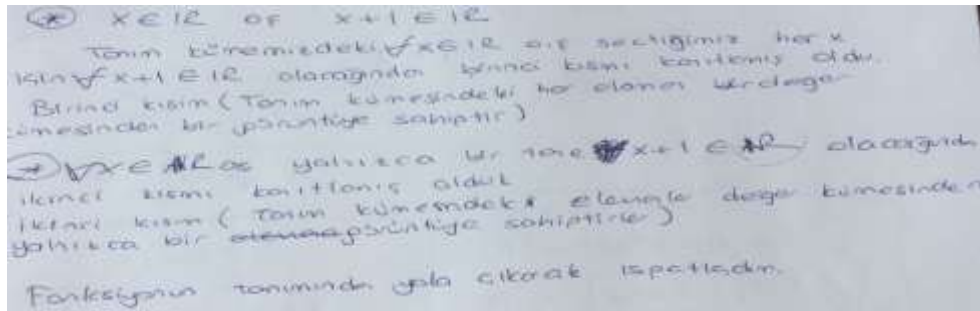 (*) x ∈ IR x+1 ∈ IR
Tanım kümemizdeki ∀x∈IR seçtiğimiz her x
için ∀ x+1 ∈ IR olacağından birinci kısmı kanıtlamış olduk.
Birinci kısım (Tanım kümesindeki her eleman değer
kümesinden bir görüntüye sahiptir)
∀x∈IR yalnızca bir tane x+1 ∈ IR olacağından
ikinci kısmı kanıtlamış olduk
ikinci kısım (Tanım kümesindeki elemanlar değer kümesinden
yalnızca bir görüntüye sahiptirler)
Fonksiyonun tanımından yola çıkarak ispatladım.